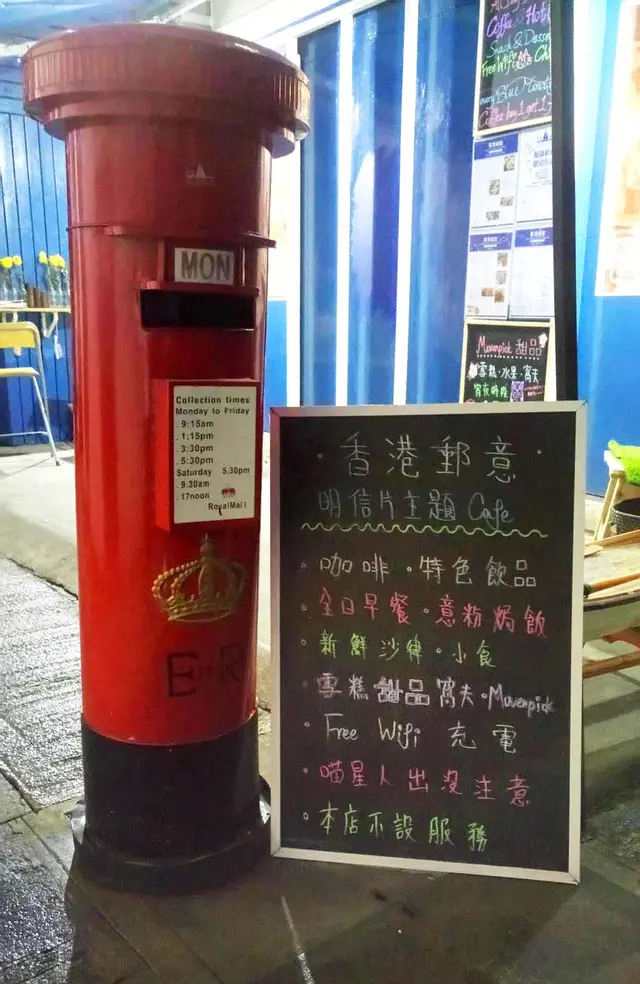 Coffee Hot
Snack & Desse
Free Wifi
every Blue Mount
Coffee buy 1 get 1
MON
Collection times
Monday to Friday
. 9:15am
. 1:15pm
. 3:30pm
. 5:30pm
Saturday 5.30pm
. 9.30am
. 17noon
RoyalMail
E R
Movenpick 甜品
雪糕·水果·窩夫
·香港郵意·
明信片主題 Cafe
·咖啡·特色飲品
·全日早餐·意粉焗飯
·新鮮沙律·小食
·雪糕甜品窩夫·Movenpick
·Free Wifi 充電
·喵星人出沒注意
·本店不設服務